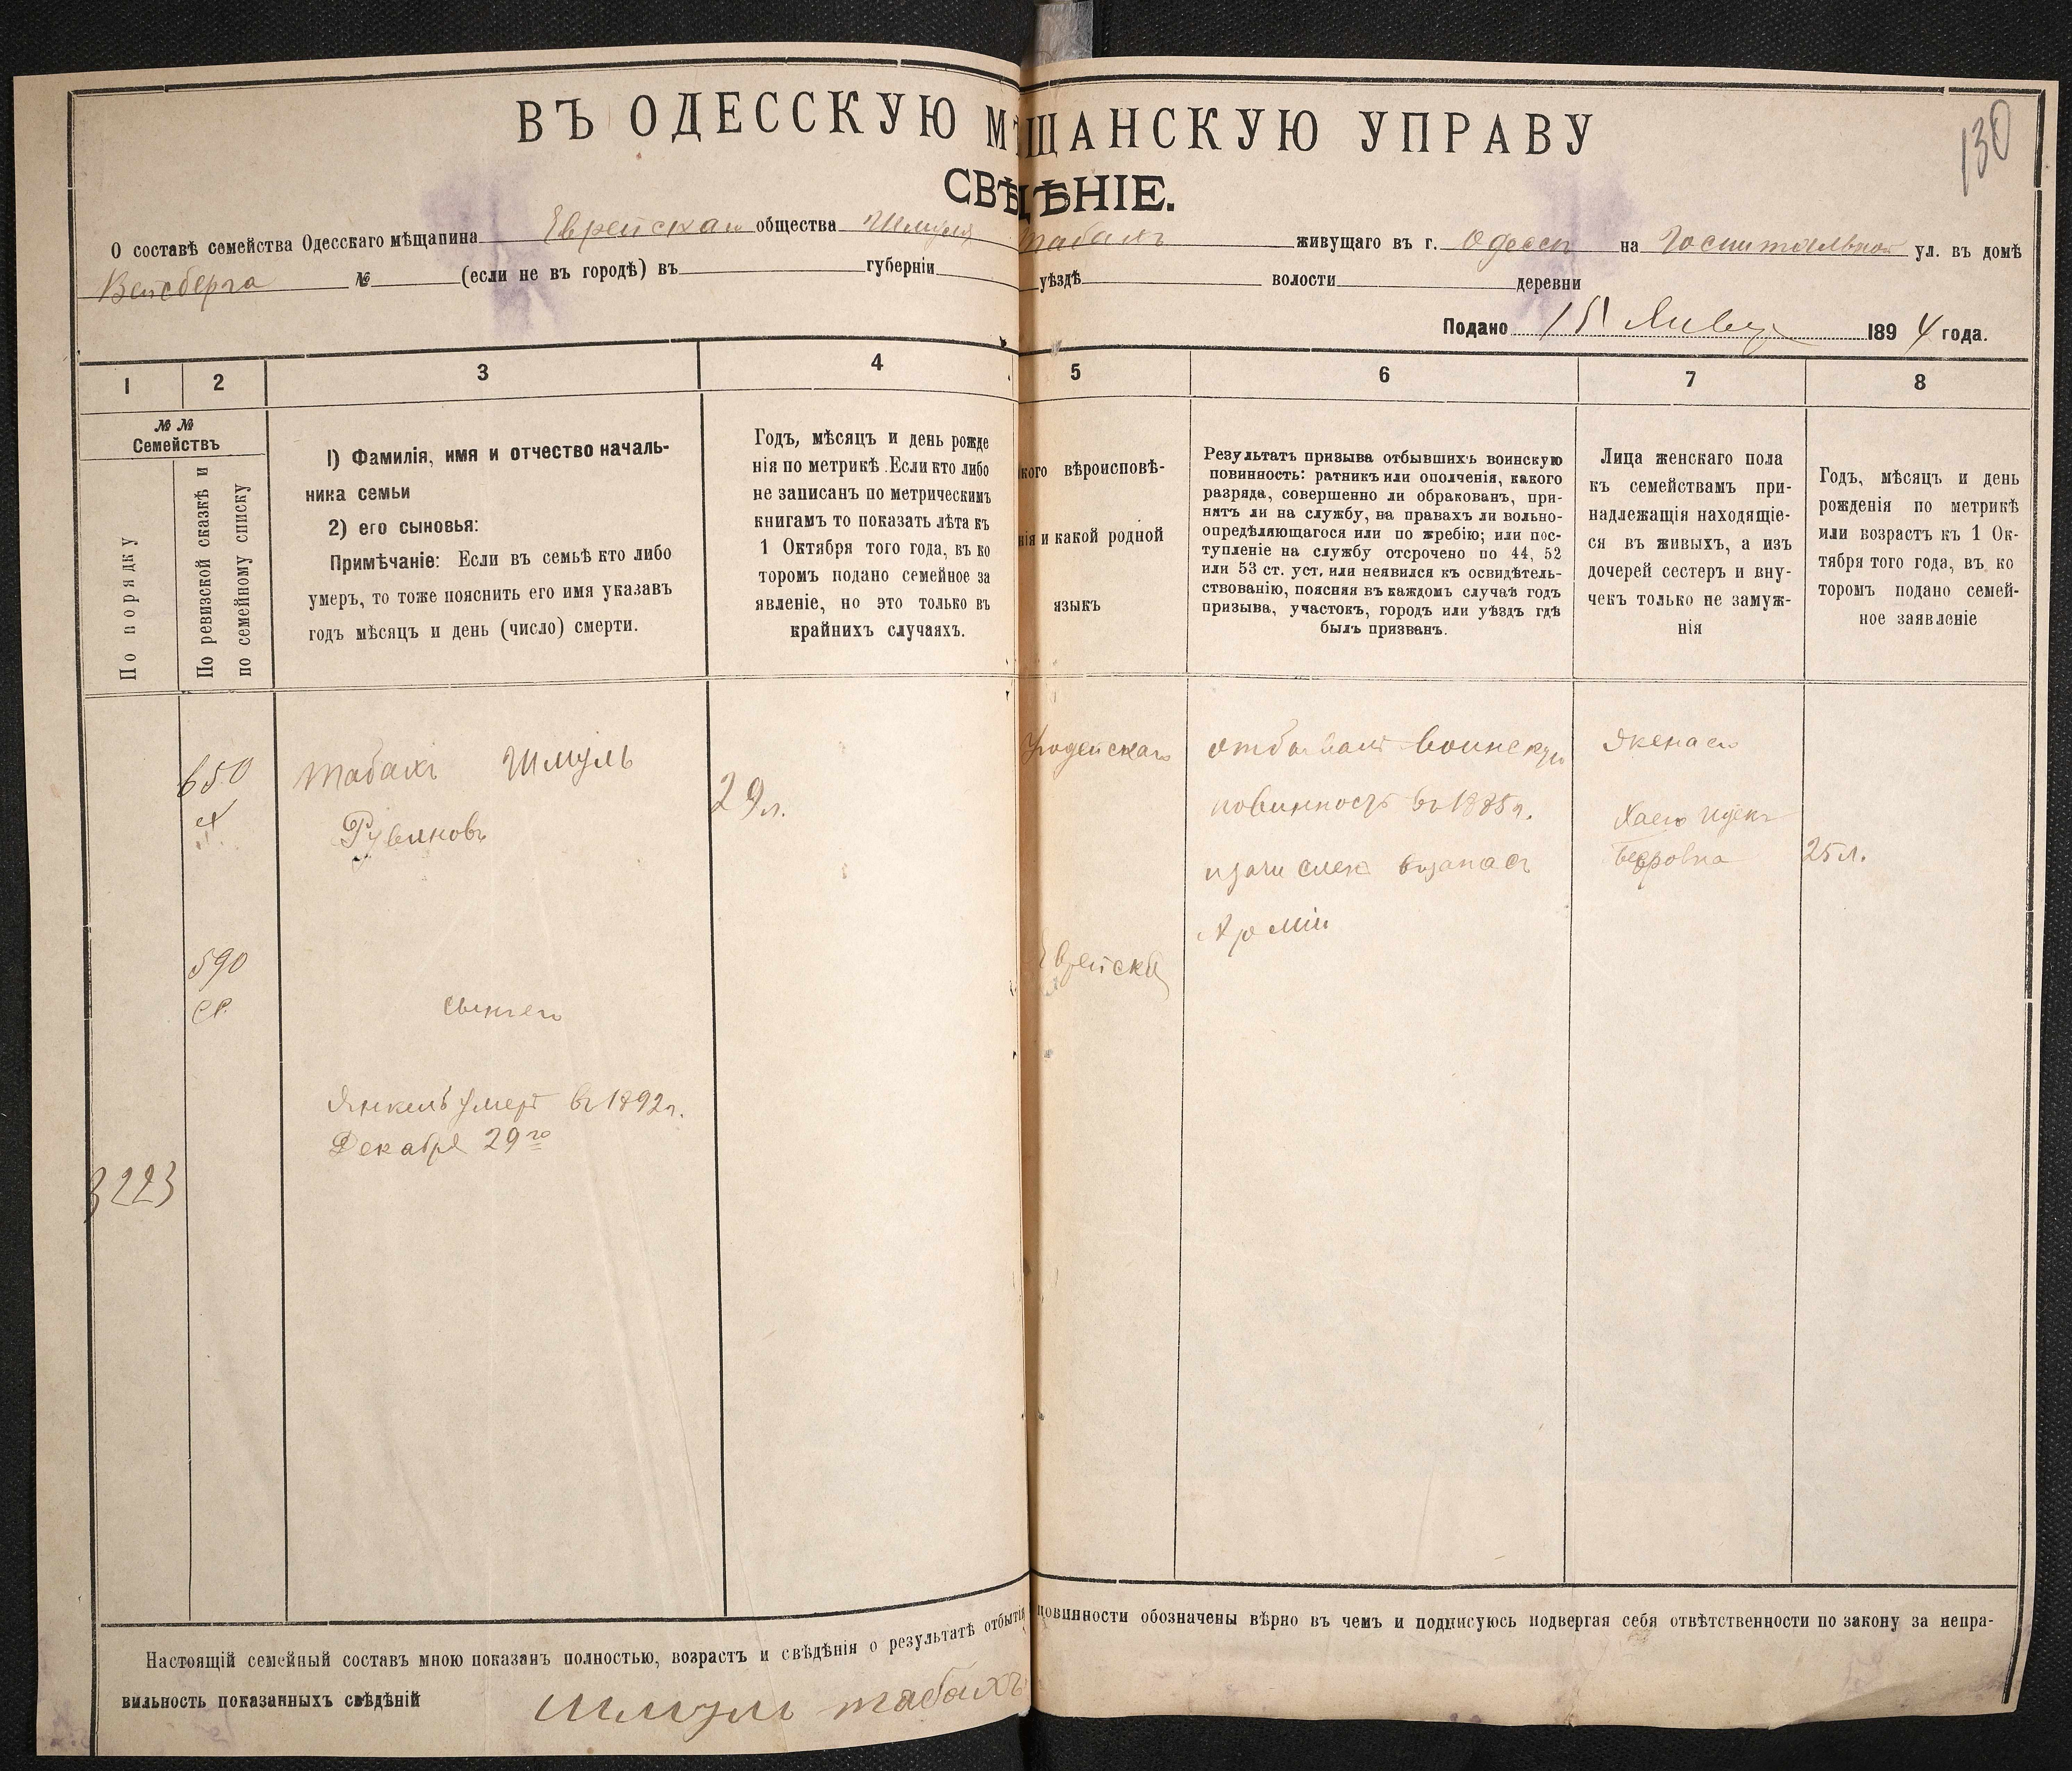 130
ВЪ ОДЕССКУЮ МѢЩАНСКУЮ УПРАВУ
СВѢДѢНІЕ.
О составѣ семейства Одесскаго мѣщанина Еврейскаго общества Шмуля Табахъ живущаго въ г. Одессѣ на Госпитальной ул. въ домѣ
Вейсберга № (если не въ городѣ) въ губерніи уѣздѣ волости деревни
Подано 15 Января 1894 года.
1 2 3 4 5 6 7 8
№ №
Семействъ
По порядку
По ревизской сказкѣ и
по семейному списку
1) Фамилія, имя и отчество началь-
ника семьи
2) его сыновья:
Примѣчаніе: Если въ семьѣ кто либо
умеръ, то тоже пояснить его имя указавъ
годъ мѣсяцъ и день (число) смерти.
Годъ, мѣсяцъ и день рожде
нія по метрикѣ. Если кто либо
не записанъ по метрическимъ
книгамъ то показать лѣта къ
1 Октября того года, въ ко
торомъ подано семейное за
явленіе, но это только въ
крайнихъ случаяхъ.
кого вѣроисповѣ-
нія и какой родной
языкъ
Результатъ призыва отбывшихъ воинскую
повинность: ратникъ или ополченія, какого
разряда, совершенно ли обракованъ, при-
нятъ ли на службу, на правахъ ли вольно-
опредѣляющагося или по жребію; или пос-
тупленіе на службу отсрочено по 44, 52
или 53 ст. уст, или неявился къ освидѣтель-
ствованію, поясняя въ каждомъ случаѣ годъ
призыва, участокъ, городъ или уѣздъ гдѣ
былъ призванъ.
Лица женскаго пола
къ семействамъ при-
надлежащія находящіе-
ся въ живыхъ, а изъ
дочерей сестеръ и вну-
чекъ только не замуж-
нія
Годъ, мѣсяцъ и день
рожденія по метрикѣ
или возрастъ къ 1 Ок-
тября того года, въ ко
торомъ подано семей-
ное заявленіе
650
Табахъ Шмуль
Рувиновъ
29 л.
Іудейскаго
отбывалъ воинскую
повинность въ 1885 г.
и зачисленъ в запасъ
Арміи
Жена его
Хая
Беровна
25 л.
590
Еврейскій
сынъ его
Янкель умеръ въ 1892 г.
Декабря 29го
3223
Настоящій семейный составъ мною показанъ полностью, возрастъ и свѣдѣнія о результатѣ отбытія повинности обозначены вѣрно въ чемъ и подписуюсь подвергая себя отвѣтственности по закону за непра-
вильность показанныхъ свѣдѣній Шмуль Табахъ